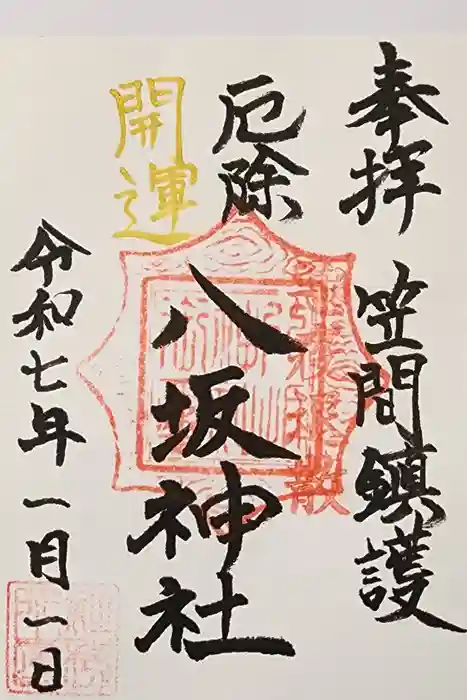 奉拝 笠間鎮護
厄除
開運
八坂神社
令和七年一月一日